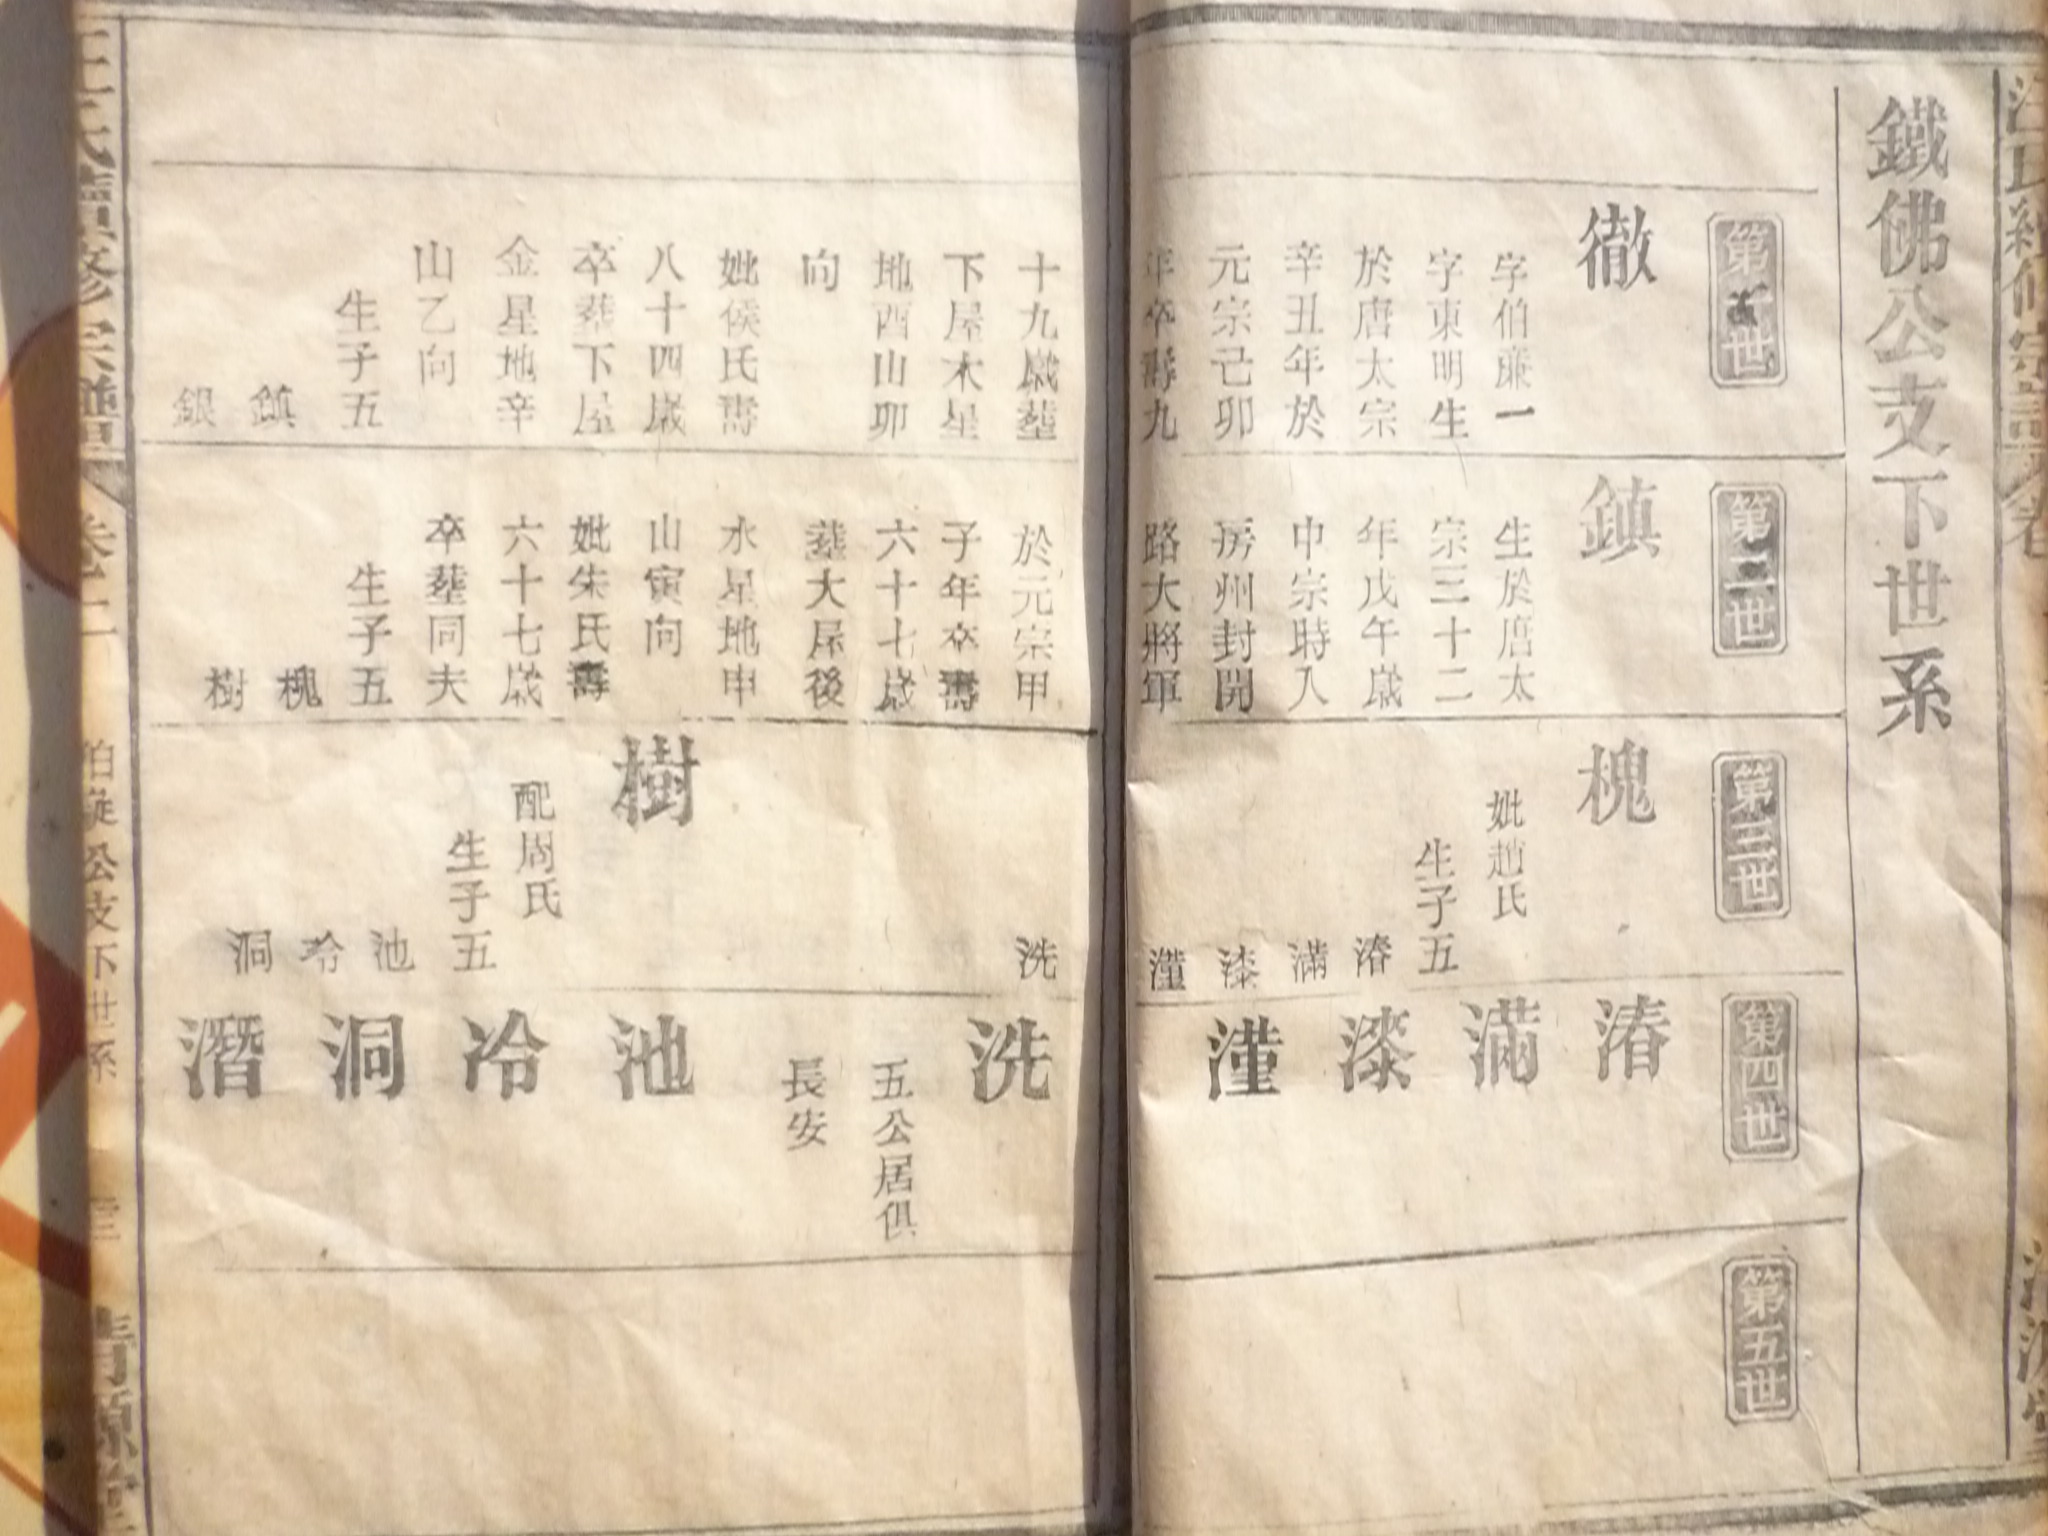 鐵佛公支下世系
第一世
徹
字伯廉一
字東明生
於唐太宗
辛丑年於
元宗己卯
年卒壽九
十九歲塟
下屋木星
地酉山卯
向
妣侯氏壽
八十四歲
卒塟下屋
金星地辛
山乙向
生子五
鎮
銀
第二世
鎮
生於唐太
宗三十二
年戊午歲
中宗時入
房州封開
路大將軍
於元宗甲
子年卒壽
六十七歲
塟大屋後
水星地申
山寅向
妣朱氏壽
六十七歲
卒塟同夫
生子五
槐
樹
第三世
槐
妣趙氏
生子五
湷
滿
漆
漌
洗
樹
配周氏
生子五
池
冷
洞
第四世
湷
滿
漆
漌
洗
五公居俱
長安
池
冷
洞
潛
第五世
氏續修宗譜
卷二
公支下世系